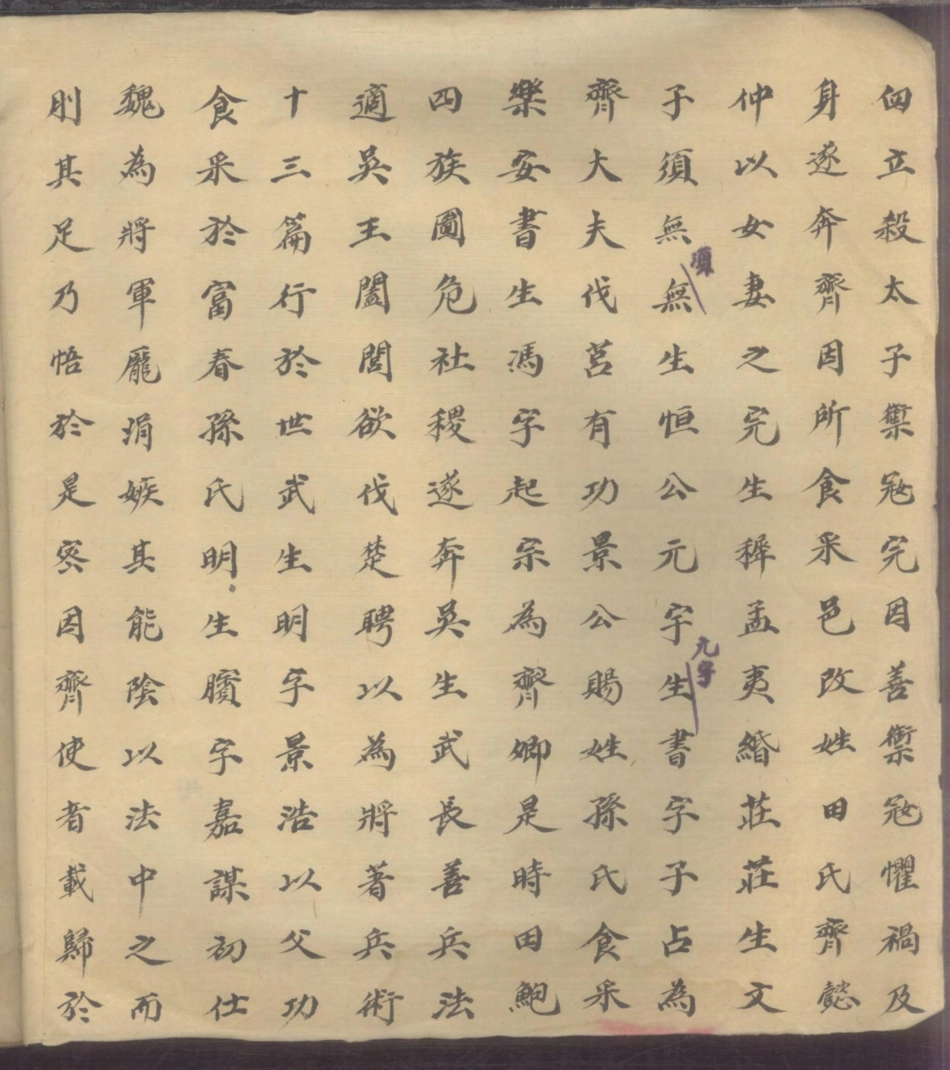 立殺太子禦冦完因善禦冦懼禍及
身遂奔齊因所食采邑改姓田氏齊懿
仲以女妻之完生穉孟夷緡莊莊生文
子須無無生恒公元字生書字子占為
須
元字
齊大夫伐莒有功景公賜姓孫氏食采
樂安書生馮字起宗為齊卿是時田鮑
四族圖危社稷遂奔吳生武長善兵法
適吳王闔閭欲伐楚聘以為將著兵術
十三篇行於世武生明字景浩以父功
食采於富春孫氏明生臏字嘉謀初仕
魏為將軍龐涓嫉其能陰以法中之而
刖其足乃悟於是密因齊使者載歸於